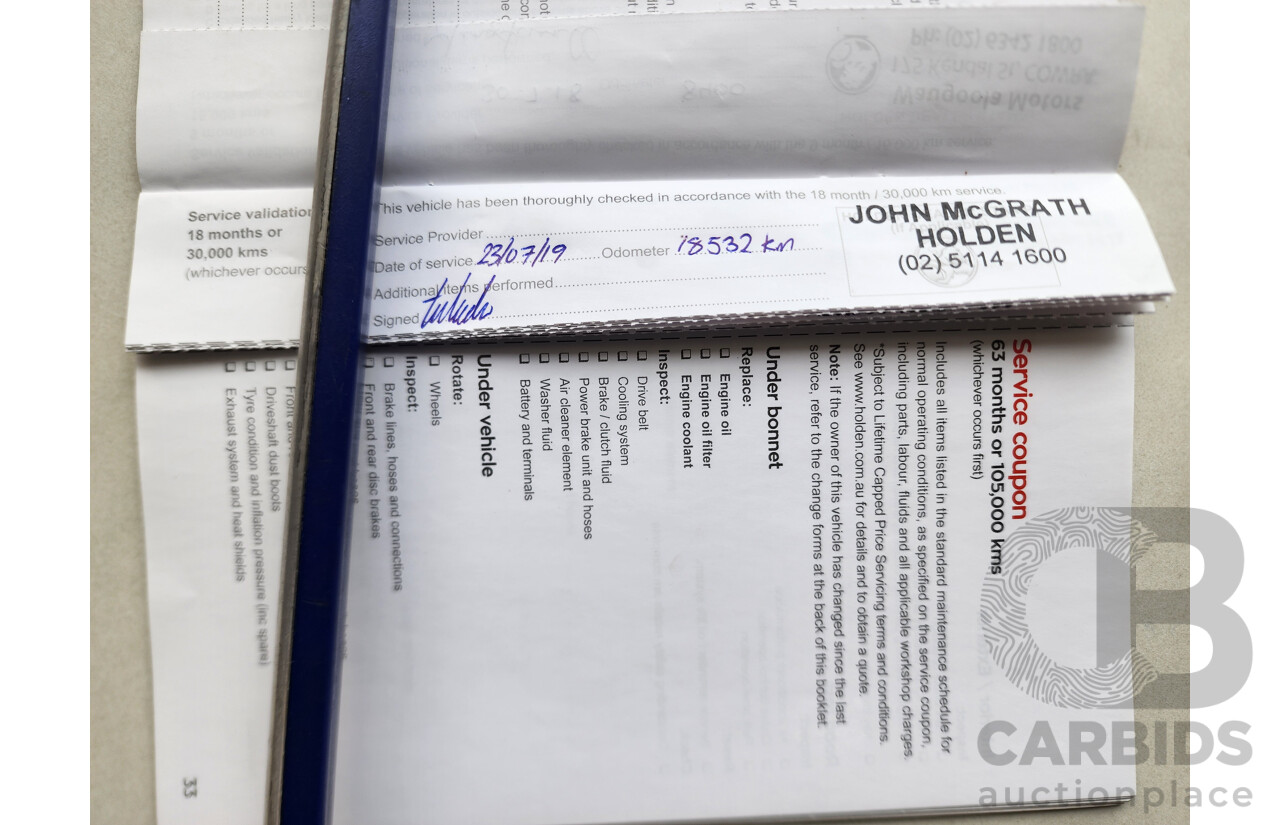 Ph: (02) 6342 1800
175 Kendal St, COWRA
Waugoola Motors
This vehicle has been thoroughly checked in accordance with the 18 month / 30,000 km service.
Service validation
18 months or
30,000 kms
(whichever occurs
Service Provider
Date of service 23/07/19 Odometer 18532 km
Additional items performed
Signed
JOHN McGRATH
HOLDEN
(02) 5114 1600
Service coupon
63 months or 105,000 kms
(whichever occurs first)
Includes all items listed in the standard maintenance schedule for
normal operating conditions, as specified on the service coupon,
including parts, labour, fluids and all applicable workshop charges.
*Subject to Lifetime Capped Price Servicing terms and conditions.
See www.holden.com.au for details and to obtain a quote.
Note: If the owner of this vehicle has changed since the last
service, refer to the change forms at the back of this booklet.
Under bonnet
Replace:
Engine oil
Engine oil filter
Engine coolant
Inspect:
Drive belt
Cooling system
Brake / clutch fluid
Power brake unit and hoses
Air cleaner element
Washer fluid
Battery and terminals
Under vehicle
Rotate:
Wheels
Inspect:
Brake lines, hoses and connections
Front and rear disc brakes
Front and
Driveshaft dust boots
Tyre condition and inflation pressure (inc spare)
Exhaust system and heat shields
33
CARBIDS
auctionplace